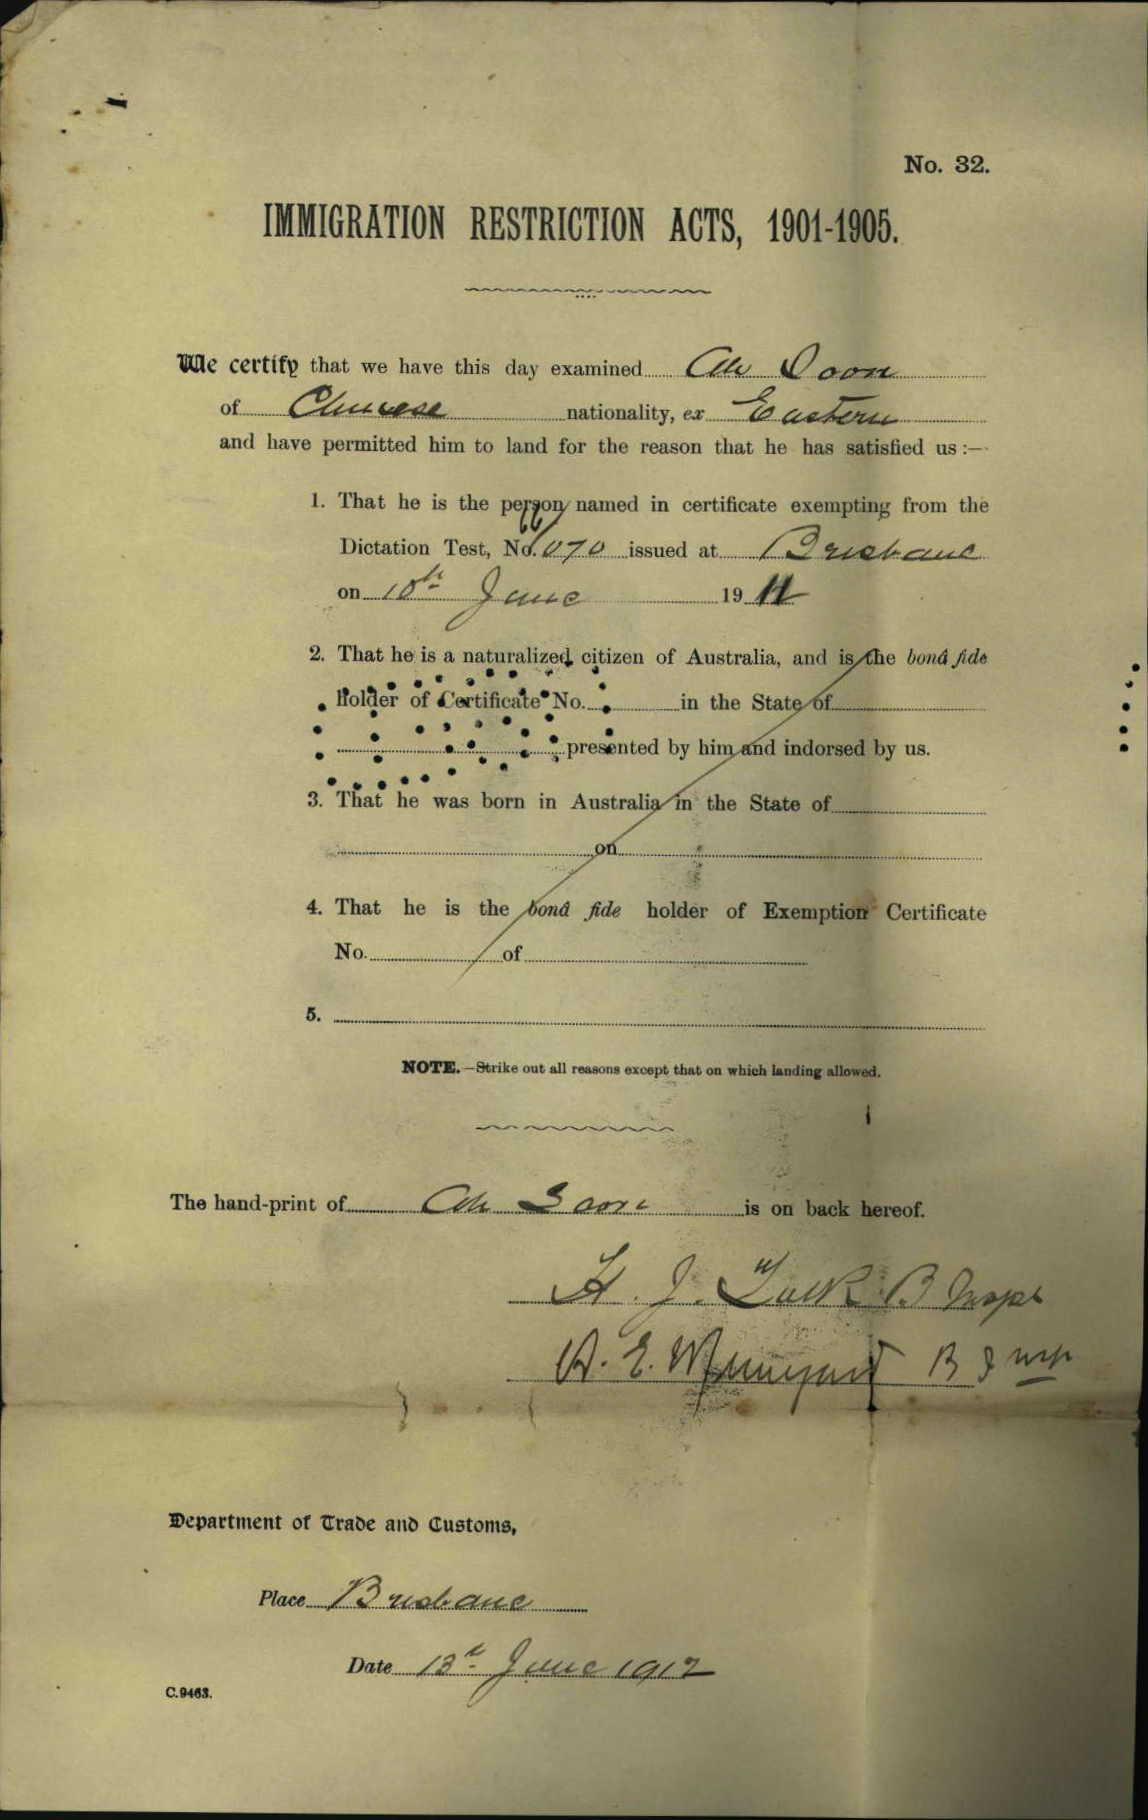 No. 32.
IMMIGRATION RESTRICTION ACTS, 1901-1905.
We certify that we have this day examined Ah Soon
of Chinese nationality, ex Eastern
and have permitted him to land for the reason that he has satisfied us :—
1. That he is the person named in certificate exempting from the
Dictation Test, No. 070 issued at Brisbane
on 10th June 1911
2. That he is a naturalized citizen of Australia, and is the bonâ fide
holder of Certificate No. in the State of
presented by him and indorsed by us.
3. That he was born in Australia in the State of
on
4. That he is the bonâ fide holder of Exemption Certificate
No. of
5.
NOTE.—Strike out all reasons except that on which landing allowed.
The hand-print of Ah Soon is on back hereof.
H. J.
E.
Department of Trade and Customs,
Place Brisbane
Date 13th June 1912
C.9463.